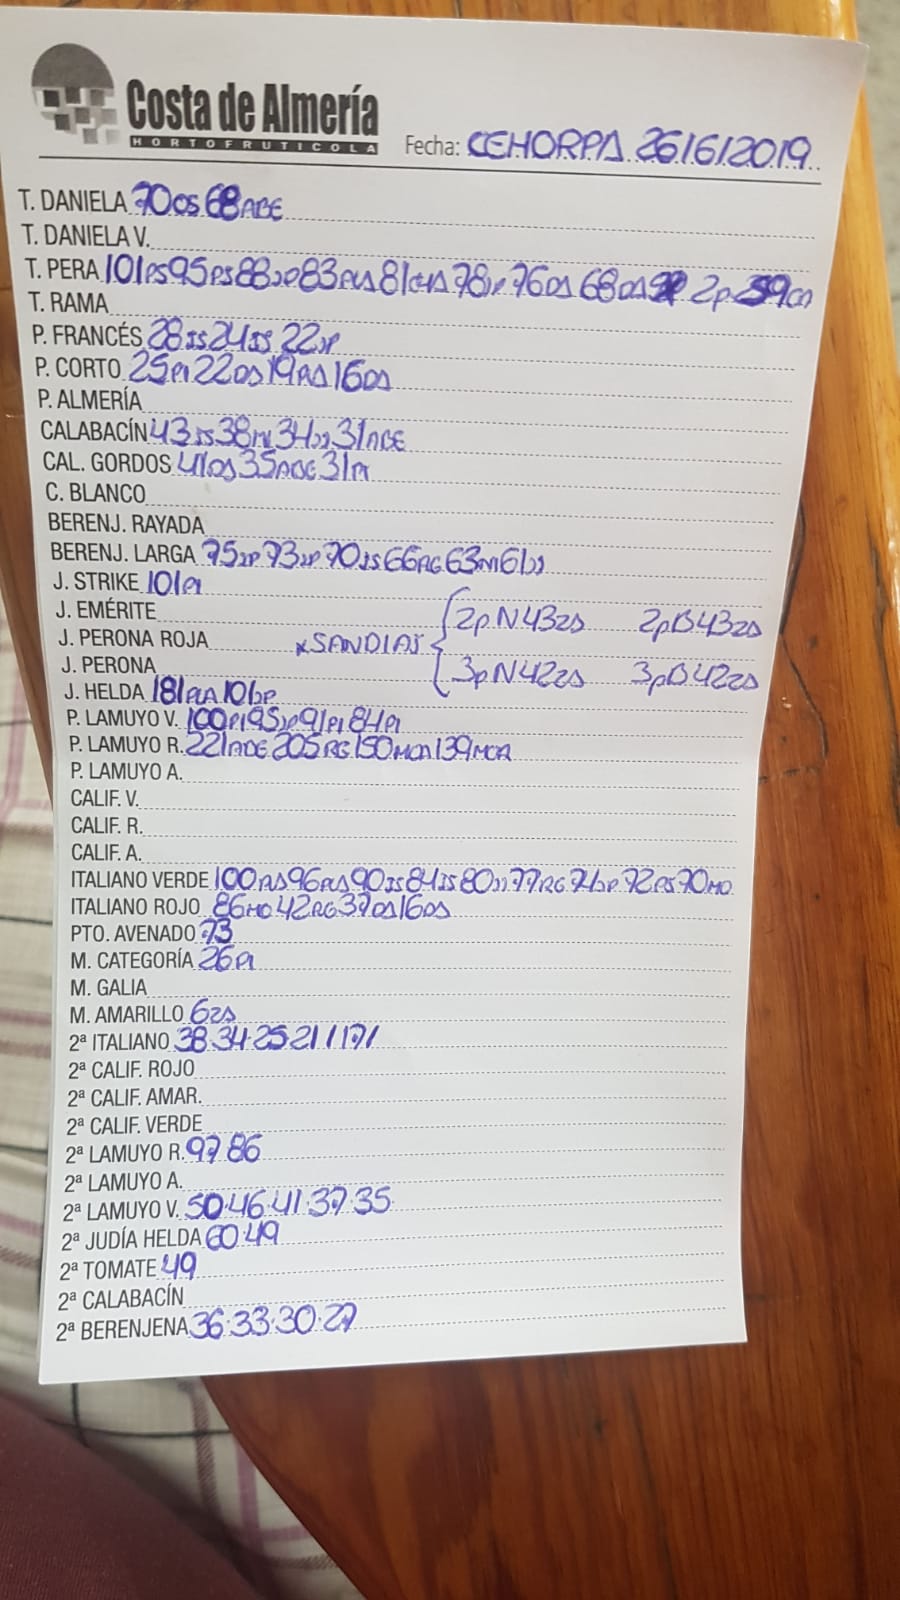 Costa de Almería
HORTOFRUTICOLA
Fecha: CEHORPA 26/6/2019
T. DANIELA 70OS 68ABE
T. DANIELA V.
T. PERA 101PS 95PS 88JP 83 81 78JP 76OS 68OS 2P 59
T. RAMA
P. FRANCÉS 28JS 24JS 22JP
P. CORTO 25PI 22OS 19 16OS
P. ALMERÍA
CALABACÍN 43JS 38 34JJ 31ABE
CAL. GORDOS 41OS 35ABE 31PI
C. BLANCO
BERENJ. RAYADA
BERENJ. LARGA 75JP 73JP 70JS 66RG 63 61JJ
J. STRIKE 101PI
J. EMÉRITE
J. PERONA ROJA
J. PERONA
xSANDIAS { 2pN43ZS 2pB43ZS
3pN42ZS 3pB42ZS
J. HELDA 181 101JP
P. LAMUYO V. 100PI 95JP 91PI 84PI
P. LAMUYO R. 221ABE 205RG 150MCA 139MCA
P. LAMUYO A.
CALIF. V.
CALIF. R.
CALIF. A.
ITALIANO VERDE 100 96 90JS 84JS 80JJ 77RG 74JP 72PS 70MO
ITALIANO ROJO 86MO 42RG 37OS 16OS
PTO. AVENADO 73
M. CATEGORÍA 26PI
M. GALIA
M. AMARILLO 6ZS
2ª ITALIANO 38.34.25.21/17/
2ª CALIF. ROJO
2ª CALIF. AMAR.
2ª CALIF. VERDE
2ª LAMUYO R. 97.86
2ª LAMUYO A.
2ª LAMUYO V. 50.46.41.37.35
2ª JUDÍA HELDA 60.49
2ª TOMATE 49
2ª CALABACÍN
2ª BERENJENA 36.33.30.27